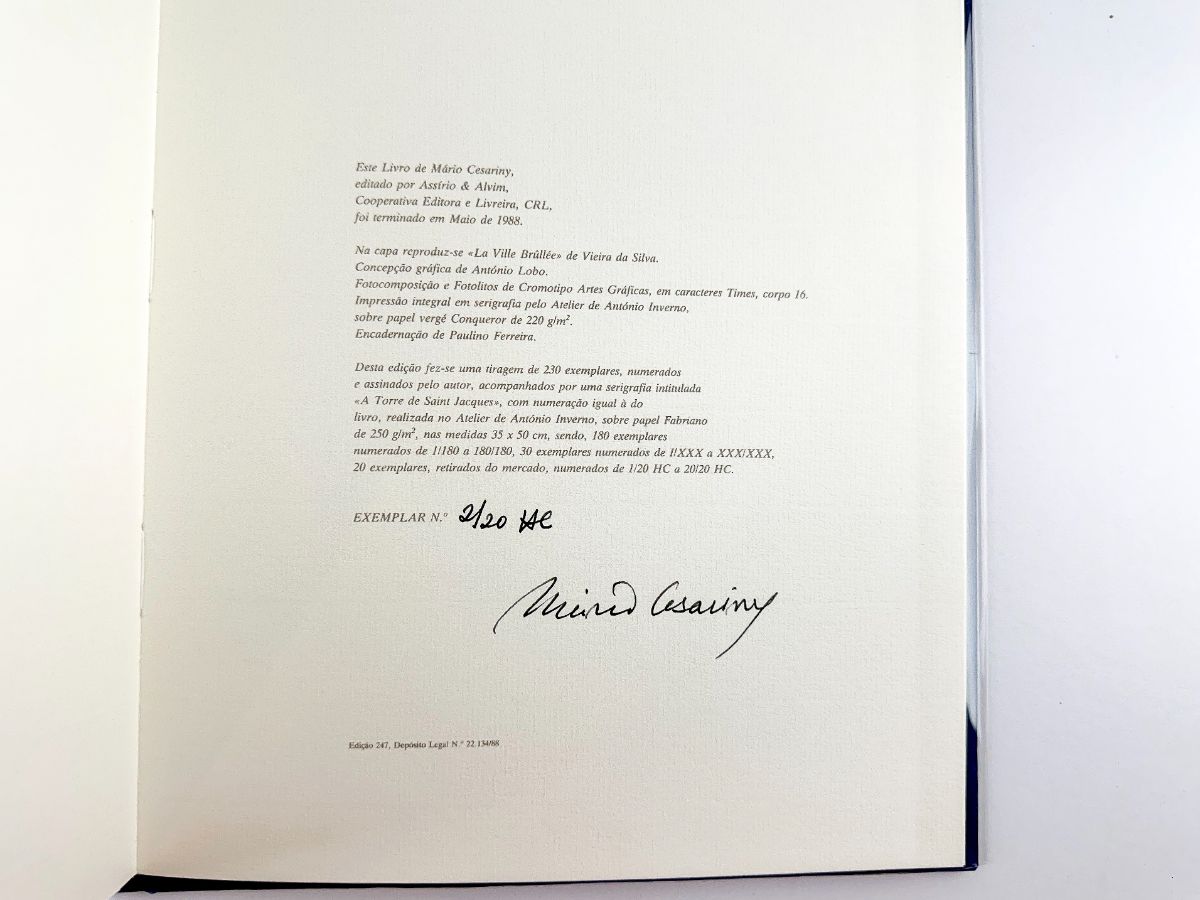 Este Livro de Mário Cesariny,
editado por Assírio & Alvim,
Cooperativa Editora e Livreira, CRL,
foi terminado em Maio de 1988.
Na capa reproduz-se «La Ville Brûllée» de Vieira da Silva.
Concepção gráfica de António Lobo.
Fotocomposição e Fotolitos de Cromotipo Artes Gráficas, em caracteres Times, corpo 16.
Impressão integral em serigrafia pelo Atelier de António Inverno,
sobre papel vergé Conqueror de 220 g/m².
Encadernação de Paulino Ferreira.
Desta edição fez-se uma tiragem de 230 exemplares, numerados
e assinados pelo autor, acompanhados por uma serigrafia intitulada
«A Torre de Saint Jacques», com numeração igual à do
livro, realizada no Atelier de António Inverno, sobre papel Fabriano
de 250 g/m², nas medidas 35 x 50 cm, sendo, 180 exemplares
numerados de 1/180 a 180/180, 30 exemplares numerados de I/XXX a XXX/XXX,
20 exemplares, retirados do mercado, numerados de 1/20 HC a 20/20 HC.
EXEMPLAR N.º 2/20 HC
Mário Cesariny
Edição 247, Depósito Legal N.º 22 134/88